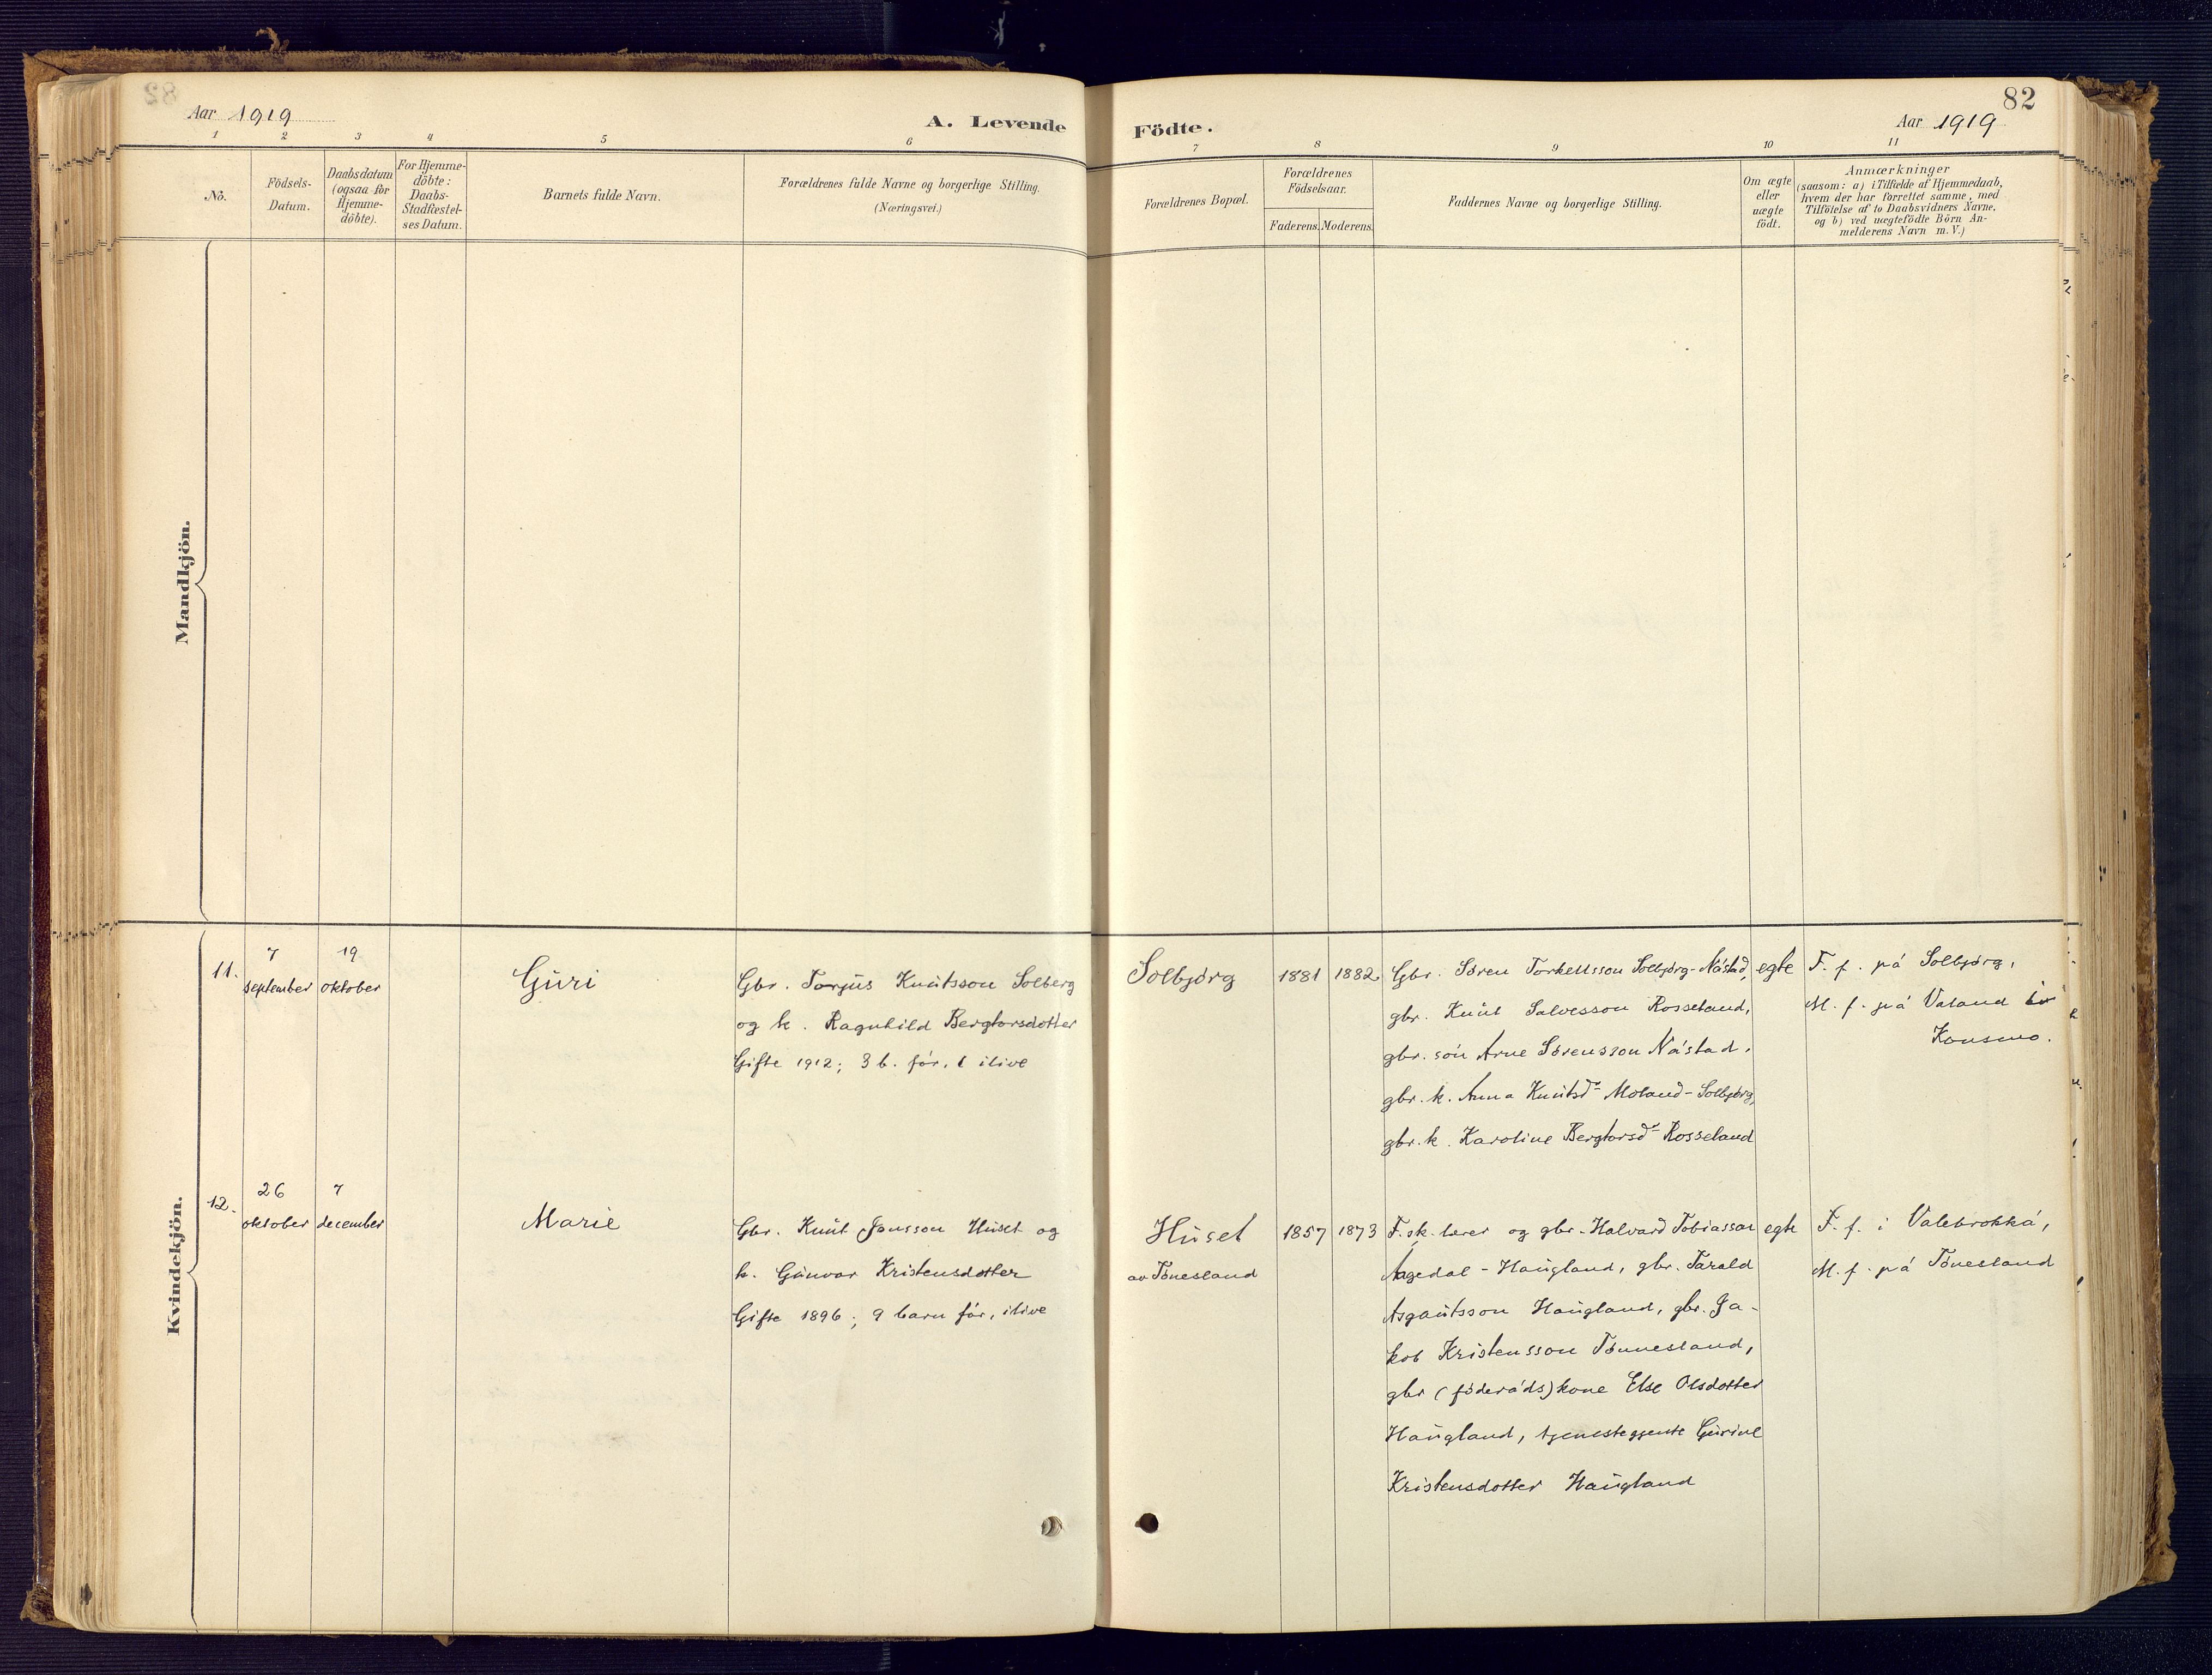 82
Aar 1919
A. Levende Födte.
Aar 1919
1 2 3 4 5 6 7 8 9 10 11
No.
Födsels-
Datum.
Daabsdatum
(ogsaa for
Hjemme-
döbte).
For Hjemme-
döbte:
Daabs-
Stadfæstel-
ses Datum.
Barnets fulde Navn.
Forældrenes fulde Navne og borgerlige Stilling.
(Næringsvei.)
Forældrenes Bopæl.
Forældrenes
Födselsaar.
Faderens. Moderens.
Faddernes Navne og borgerlige Stilling.
Om ægte
eller
uægte
födt.
Anmærkninger
(saasom: a) i Tilfælde af Hjemmedaab,
hvem der har forrettet samme, med
Tilföielse af to Daabsvidners Navne.
og b) ved uægtefödte Börn An-
melderens Navn m. V.)
Mandkjön.
Kvindekjön.
11.
7
september
19
oktober
Guri
Gbr. Torjus Knutsson Solberg
og k. Ragnhild Bergtorsdotter
Gifte 1912; 3 b. för, i live
Solbjørg
1881
1882
Gbr. Søren Torkellsson Solbjørg-Nåstad,
gbr. Knut Salvesson Rosseland,
gbr. søn Arne Sørensson Nåstad,
gbr. k. Anna Knutsdr Moland-Solbjørg,
gbr. k. Karoline Bergtorsdr Rosseland
egte
F. f. på Solbjørg,
M. f. på Valand i
Konsmo.
12.
26
oktober
7
december
Marie
Gbr. Knut Jonsson Huset og
k. Gunvor Kristensdotter
Gifte 1896; 9 barn før, ilive
Huset
av Tønesland
1857
1873
F. sk. lærer og gbr. Halvard Tobiasson
Aagedal - Haugland, gbr. Tarald
Asgautsson Haugland, gbr. Ja-
kob Kristensson Tønnesland,
gbr (föderåds) kone Else Olsdotter
Haugland, tjenestegjente Gurine
Kristensdotter Haugland
egte
F. f. i Valebrokkå,
M. f. på Tønesland